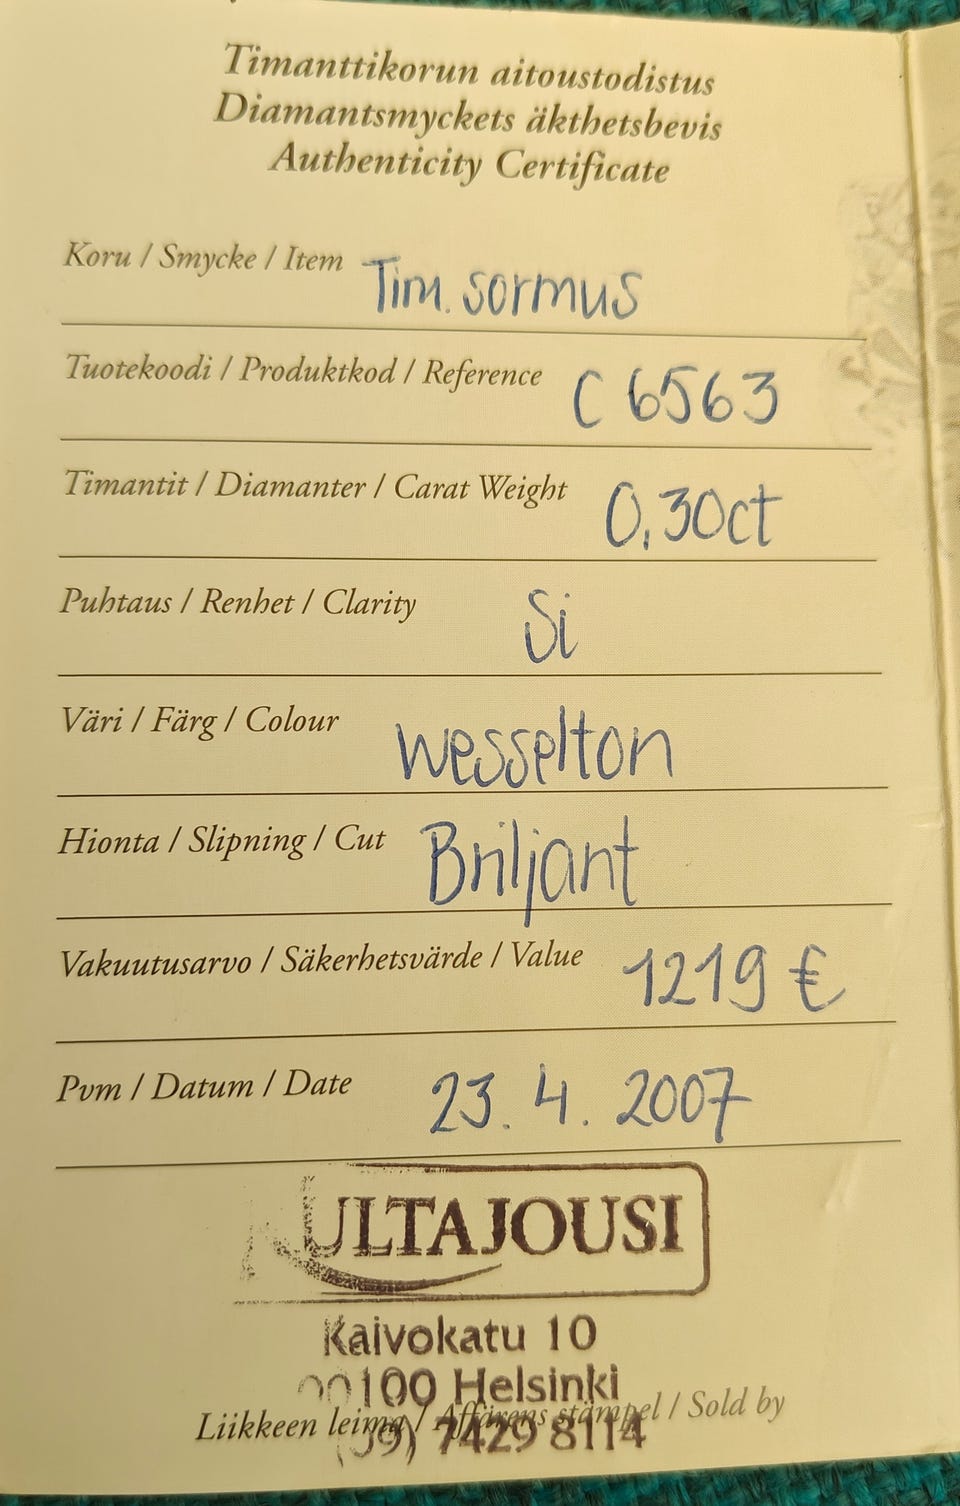 Timanttikorun aitoustodistus
Diamantsmyckets äkthetsbevis
Authenticity Certificate
Koru / Smycke / Item Tim. sormus
Tuotekoodi / Produktkod / Reference C 6563
Timantit / Diamanter / Carat Weight 0,30ct
Puhtaus / Renhet / Clarity Si
Väri / Färg / Colour wesselton
Hionta / Slipning / Cut Briljant
Vakuutusarvo / Säkerhetsvärde / Value 1219 €
Pvm / Datum / Date 23. 4. 2007
KULTAJOUSI
Kaivokatu 10
00100 Helsinki
Liikkeen leima / Affärens stämpel / Sold by
(09) 7429 8114